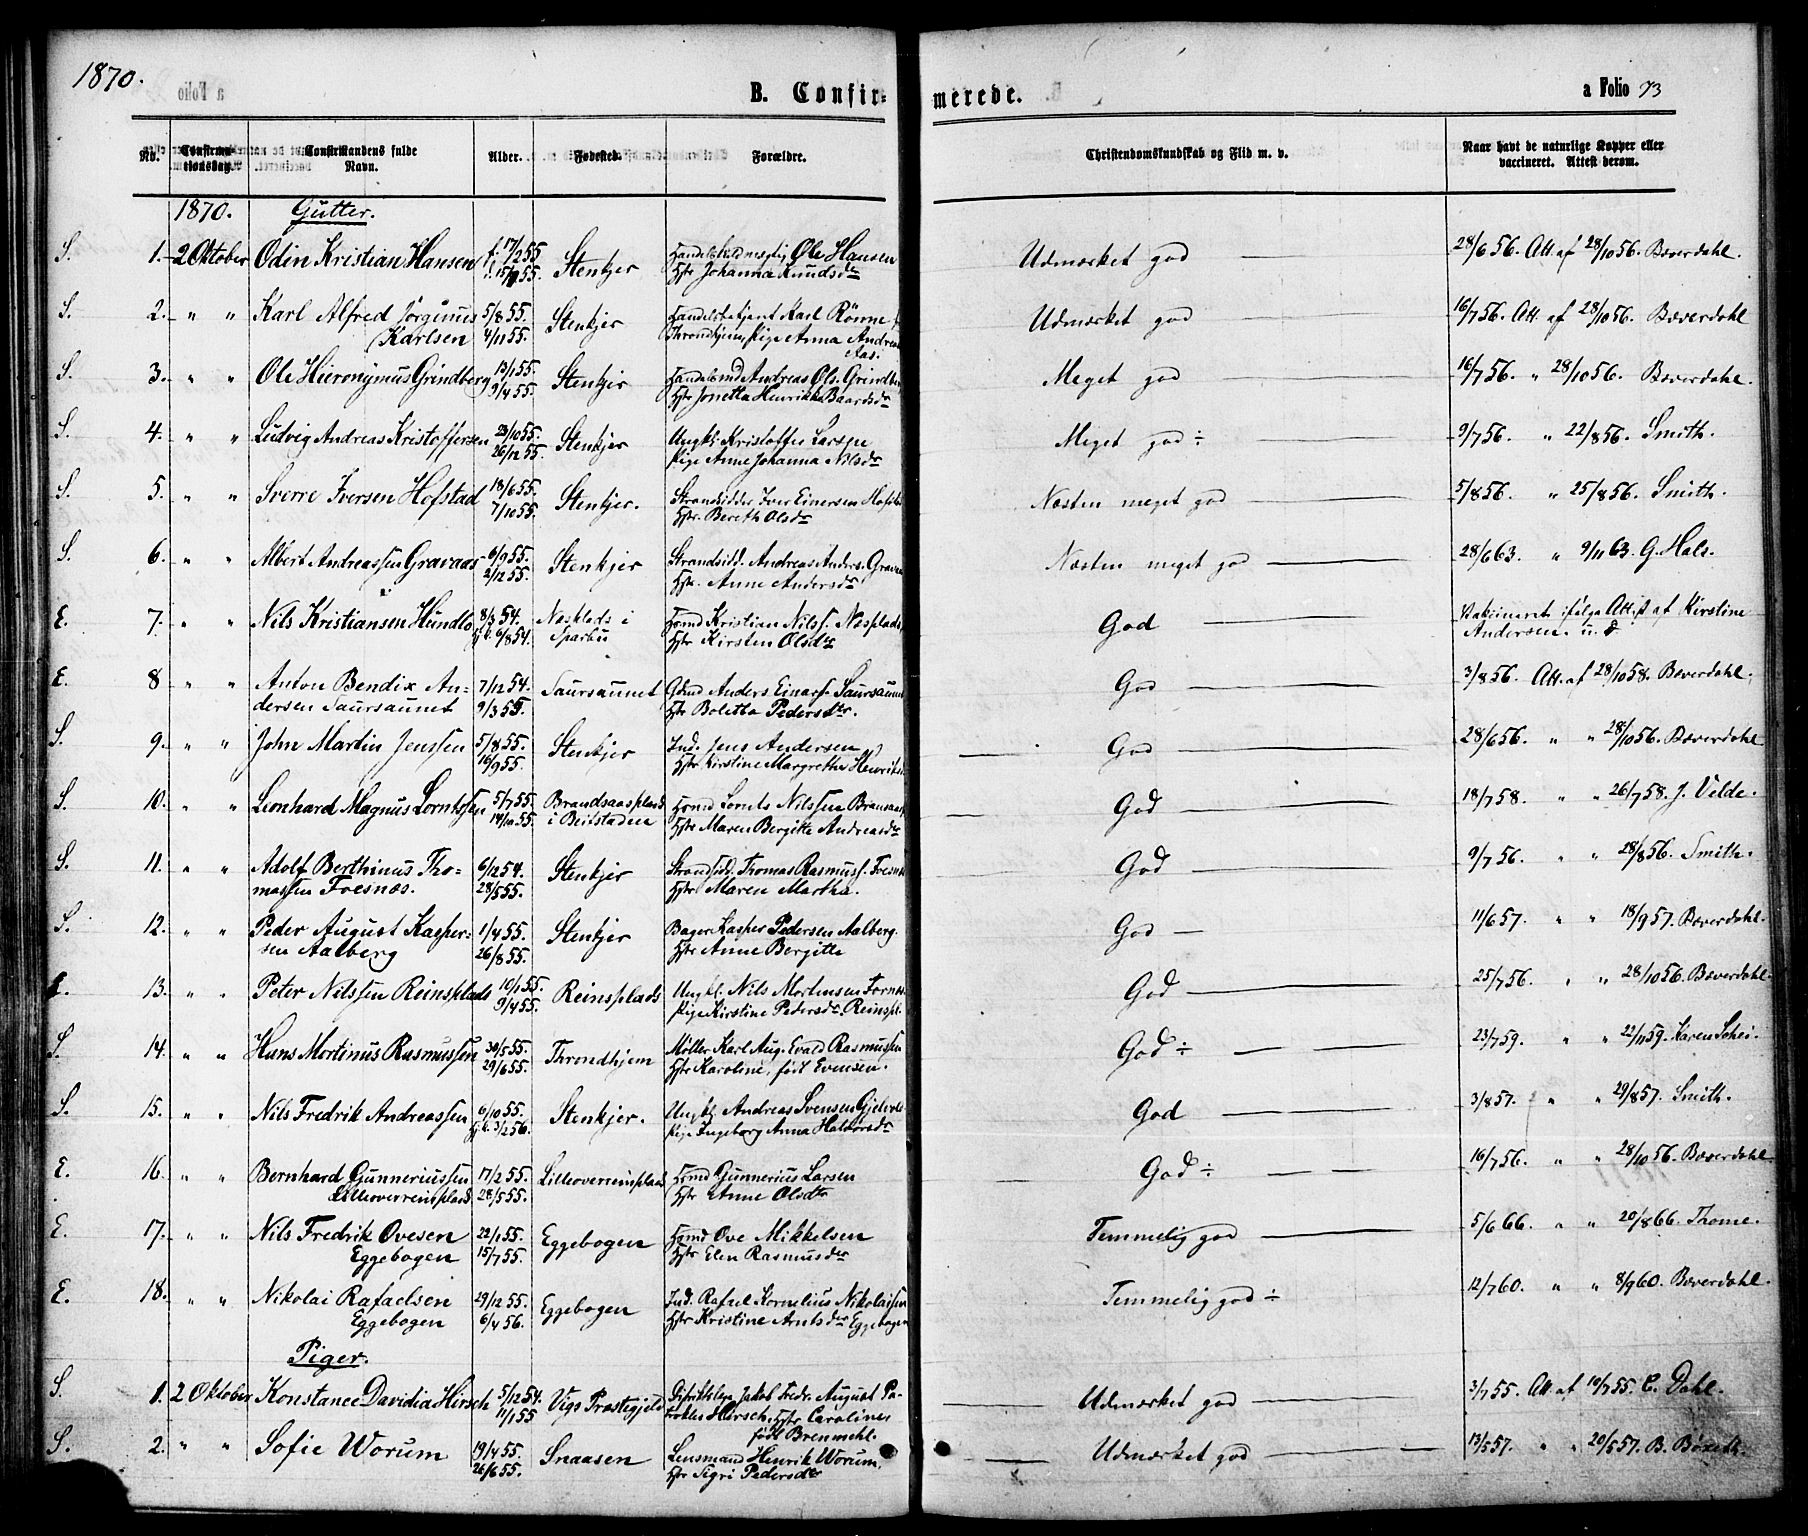 1870.
B. Confirmerede.
a Folio 73
No. Confirmationsdag. Confirmandens fulde Navn. Alder. Fødested. Forældre. Christendomskundskab og Flid m. v. Naar havt de naturlige Kopper eller vaccineret. Attest derom.
1870. Gutter.
S. 1. 2 Oktober Odin Kristian Hansen f. 17/2 55 Stenkjer Ole Hansen Udmærket god 28/6 56. Att. af 28/10 56. Bæverdahl.
Hstr Johanna Knudsdr
S. 2. " " Karl Alfred Jørginus 5/8 55. Stenkjer Handelsbetjent Karl Rønne Udmærket god 16/7 56. Att. af 28/10 56. Bæverdahl
Karlsen 4/11 55. Pige Anna Andrea
Aas.
S. 3. " " Ole Hieronymus Grindberg 13/1 55. Stenkjer Handelsmd Andreas Ols. Grindberg Meget god 16/7 56. " 28/10 56. Bæverdahl.
9/4 55. Hstr Jonetta Henrikke Baardsdr
S. 4. " " Ludvig Andreas Kristoffersen 23/10 55. Stenkjer Ungkl. Kristoffer Larsen Meget god ÷ 9/7 56. " 22/8 56. Smith.
26/12 55. Pige Anne Johanna Nilsdr
S. 5. " " Sverre Iversen Hofstad 18/6 55. Stenkjer. Strandsidder Iver Einersen Næsten meget god 5/8 56. " 25/8 56. Smith.
7/10 55. Hstr. Bereth Olsdr
S. 6. " " Albert Andreassen Gravaas 6/9 55. Stenkjer Strandsidd. Andreas Anders. Næsten meget god 28/6 63. " 9/11 63. G. Hals.
2/12 55. Hstr. Anne Andersdr
E. 7. " " Nils Kristiansen Hundlo 8/3 54. Næsplads i Hsmd Kristian Nilss. Næsplads, God Vakcineret ifølge Att. af Kirstine
6/8 54. Sparbu Hstr Kirsten Olsdr Andersen.
E. 8 " " Anton Bendix An- 7/12 54. Saursaunet Gdmd Anders Einarss. Saursaunet God 3/8 56. Att. af 28/10 58. Bæverdahl.
dersen Saursaunet 9/3 55. Hstr Boletta Pedersdr.
S. 9. " " John Martin Jenssen 5/8 55. Stenkjer Ind. Jens Andersen God 28/6 56. " " 28/10 56. Bæverdahl
16/9 55. Hstr Kirstine Margrethe
S. 10. " " Leonhard Magnus Lorntssen 5/7 55. Brandsaasplads Hsmd Lornts Nilssen God 18/7 58. " " 26/7 58. J. Velde.
14/10 55. i Beitstaden Hstr Maren Bergitte Andreasdr
S. 11. " " Adolf Berthinus Tho- 6/12 54. Stenkjer Strandsidd. Thomas Rasmuss. God 9/7 56. " " 28/8 56. Smith.
massen Fosnæs. 28/5 55. Hstr Maren Martha.
S. 12. " " Peder August Kasper- 1/4 55. Stenkjer Bager Kasper Pedersen Aalberg. God 11/6 57. " " 18/9 57. Bæverdahl.
sen Aalberg 26/8 55. Hstr Anne Bergitte
E. 13. " " Peter Nilssen Reinsplads 10/1 55. Reinsplads Ungkl. Nils Mortensen God 25/7 56. " " 28/10 56. Bæverdahl.
9/4 55. Pige Kirstine Pedersdr. Reinspl.
S. 14. " " Hans Mortinus Rasmussen 30/5 55. Throndhjem Møller Karl Aug. Evald Rasmussen God ÷ 23/7 59. " " 22/11 59. Karen
29/6 55. Hstr Karoline, født Evensen.
S. 15. " " Nils Fredrik Andreassen 6/10 55. Stenkjer. Ungkl. Andreas Svensen God 3/8 57. " " 29/8 57. Smith.
3/2 56. Pige Ingeborg Anna Halvorsdr
E. 16. " " Bernhard Gunneriussen 17/2 55. Lilleoverreinsplads Hsmd Gunnerius Larsen God ÷ 16/7 56. " " 28/10 56. Bæverdahl.
Lilleoverreinsplads 28/5 55. Hstr Anne Olsdtr
E. 17. " " Nils Fredrik Ovesen 22/1 55. Eggebogen Hsmd Ove Mikkelsen Temmelig god 5/6 66. " " 20/8 66. Thome.
Eggebogen 15/7 55. Hstr Elen Rasmusdr
E. 18. " " Nikolai Rafaelsen 29/12 55. Eggebogen Ind. Rafael Kornelius Nikolaissen Temmelig god ÷ 12/7 60. " " 8/9 60. Bæverdahl.
Eggebogen 6/4 56. Hstr Kristine Arntsdr Eggebogen
Piger.
S. 1. 2 Oktober Konstance Davidia Hirsch 5/12 54. Vigs Præstegjeld Jakob Fredr. August Pa- Udmærket god 3/7 55. Att. af 19/7 55. C. Dahl.
1/1 55 Hirsch. Hstr Caroline,
født
S. 2. " " Sofie Worum 19/4 55. Snaasen Lensmand Henrik Worum, Udmærket god 13/5 57. " " 20/5 57. B.
26/6 55. Hstr Sigri Pedersdtr